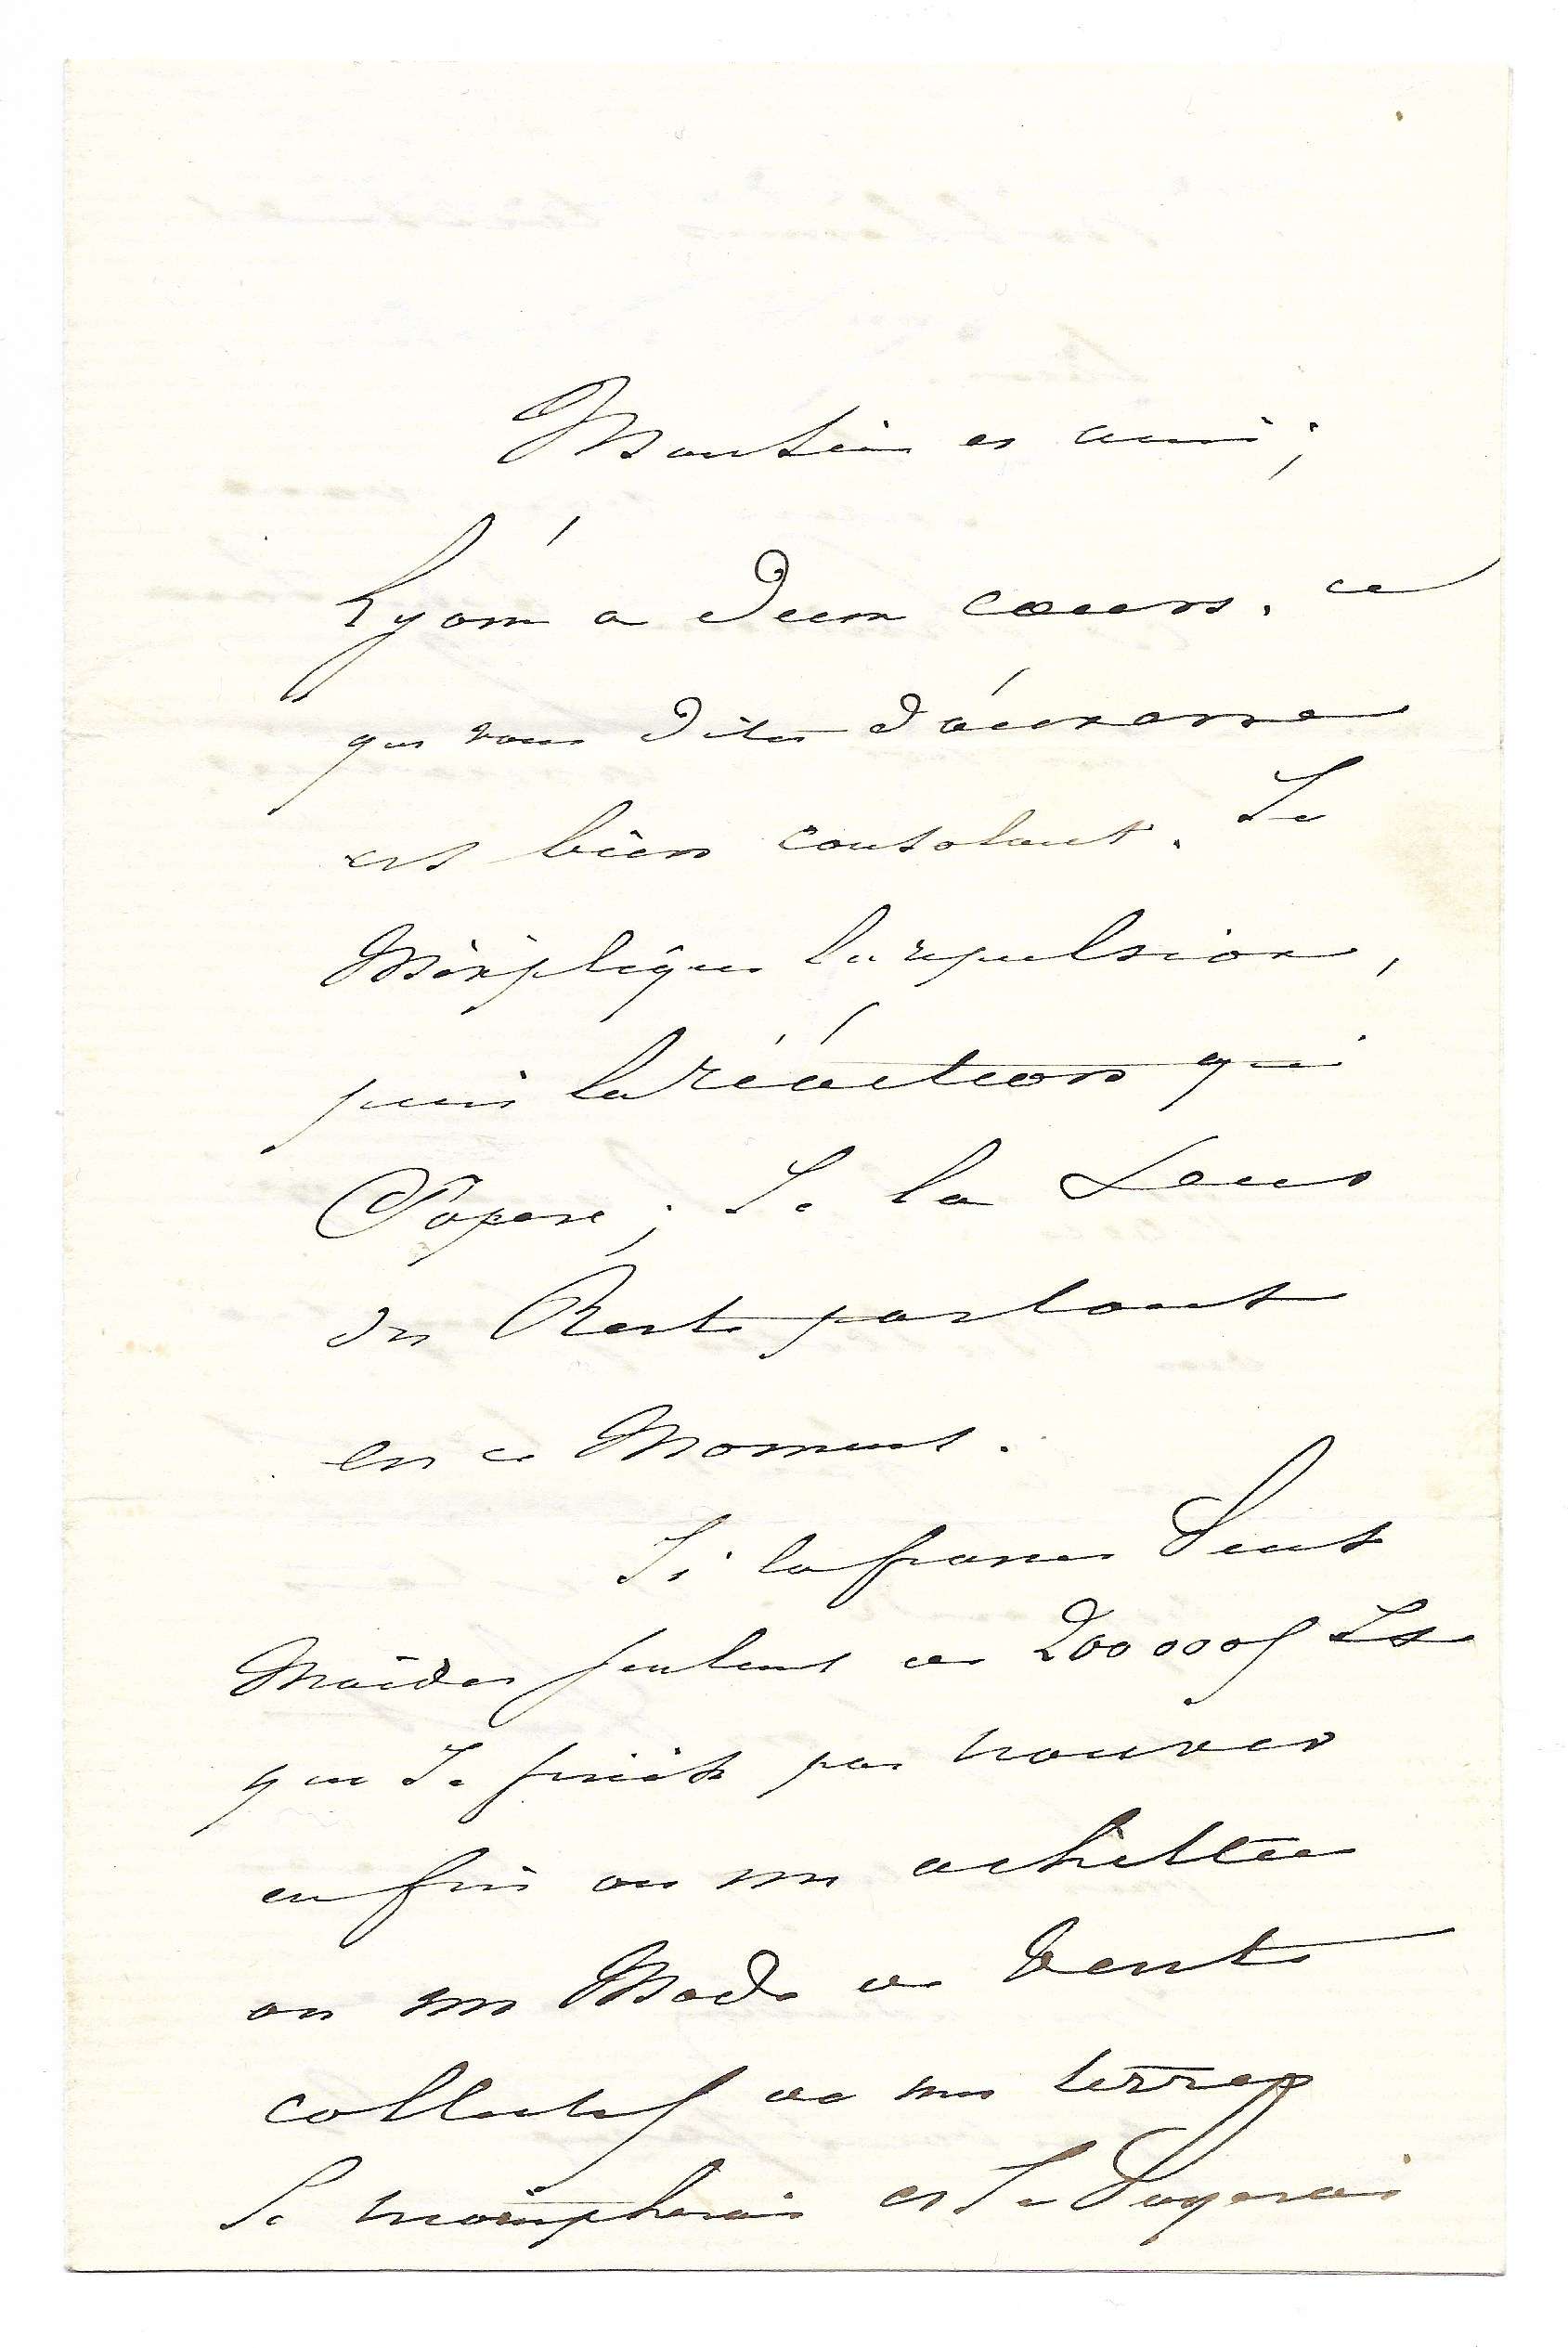 Monsieur et ami;
Lyon a deux coeurs. ce
que vous dites d'auxerre
est bien consolant. Je
M'explique la repulsion,
puis la réaction qui
S'opere; Je la Sens
du Reste partout
en ce Moment.
Si la france Veut
M'aider seulement de 200 000f Et
que Je finisse par trouver
enfin ou un acheteur
ou un Mode de Vente
collectif de mes terres
Je triompherais et Je Payerais